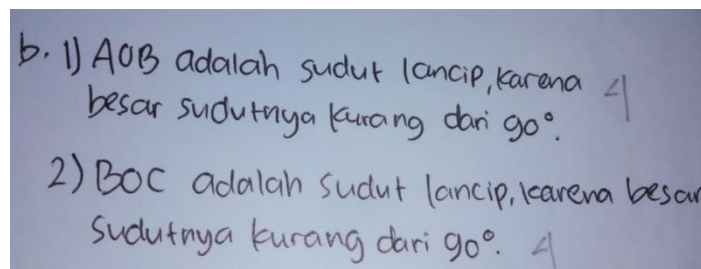 b. 1) AOB adalah sudut lancip, karena 4
besar sudutnya kurang dari 90°.
2) BOC adalah sudut lancip, karena besar
sudutnya kurang dari 90°. 4